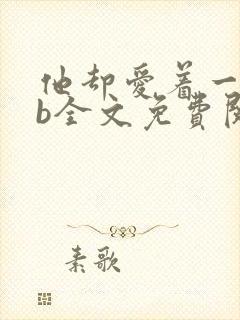 他却爱着一
b全文免費閱
素歌